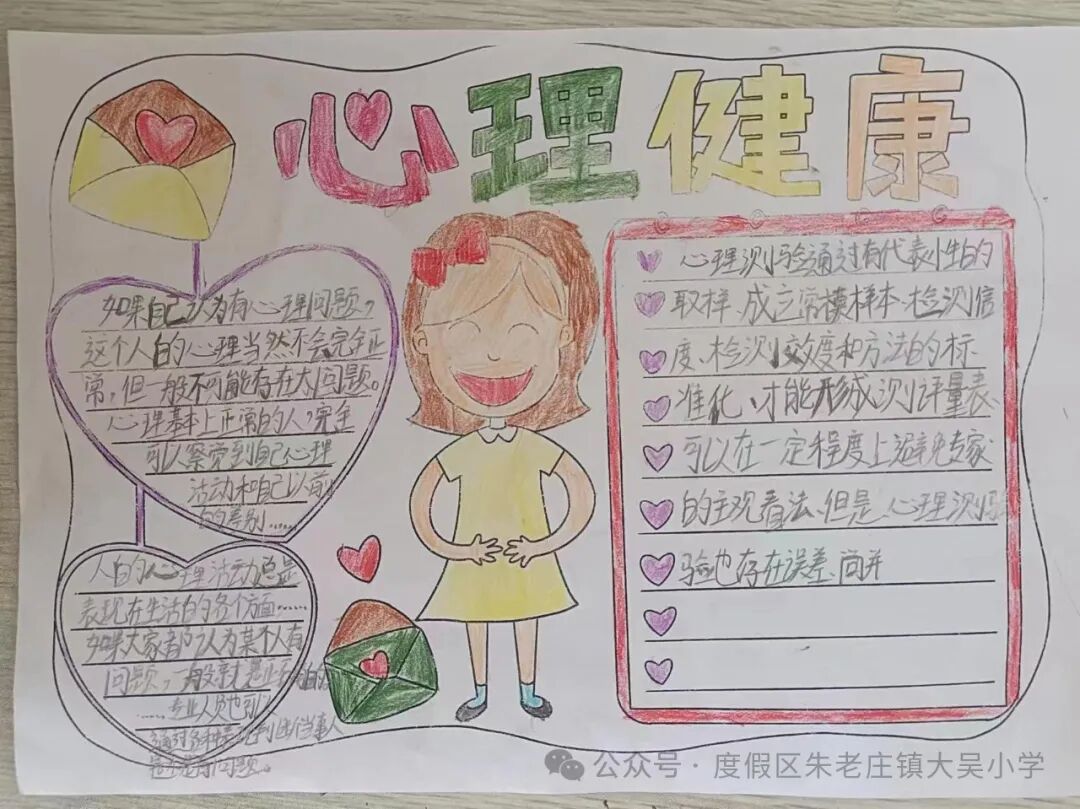 心理健康
如果自己认为有心理问题，
这个人的心理当然不会完全正
常，但一般不可能存在大问题。
心理基本上正常的人，完全
可以察觉到自己心理
活动和自己以前
的差别……
人的心理活动总是
表现在生活的各个方面……
如果大家都认为某个人有
问题，一般就是正确的
……专业人员也可以
通过各种 当事人
问题。
心理测验通过有代表性的
取样、成立常模样本、检测信
度、检测效度和方法的标
准化、才能形成测评量表、
可以在一定程度上避免专家
的主观看法、但是心理测验
验也存在误差、尚并
公众号·度假区朱老庄镇大吴小学